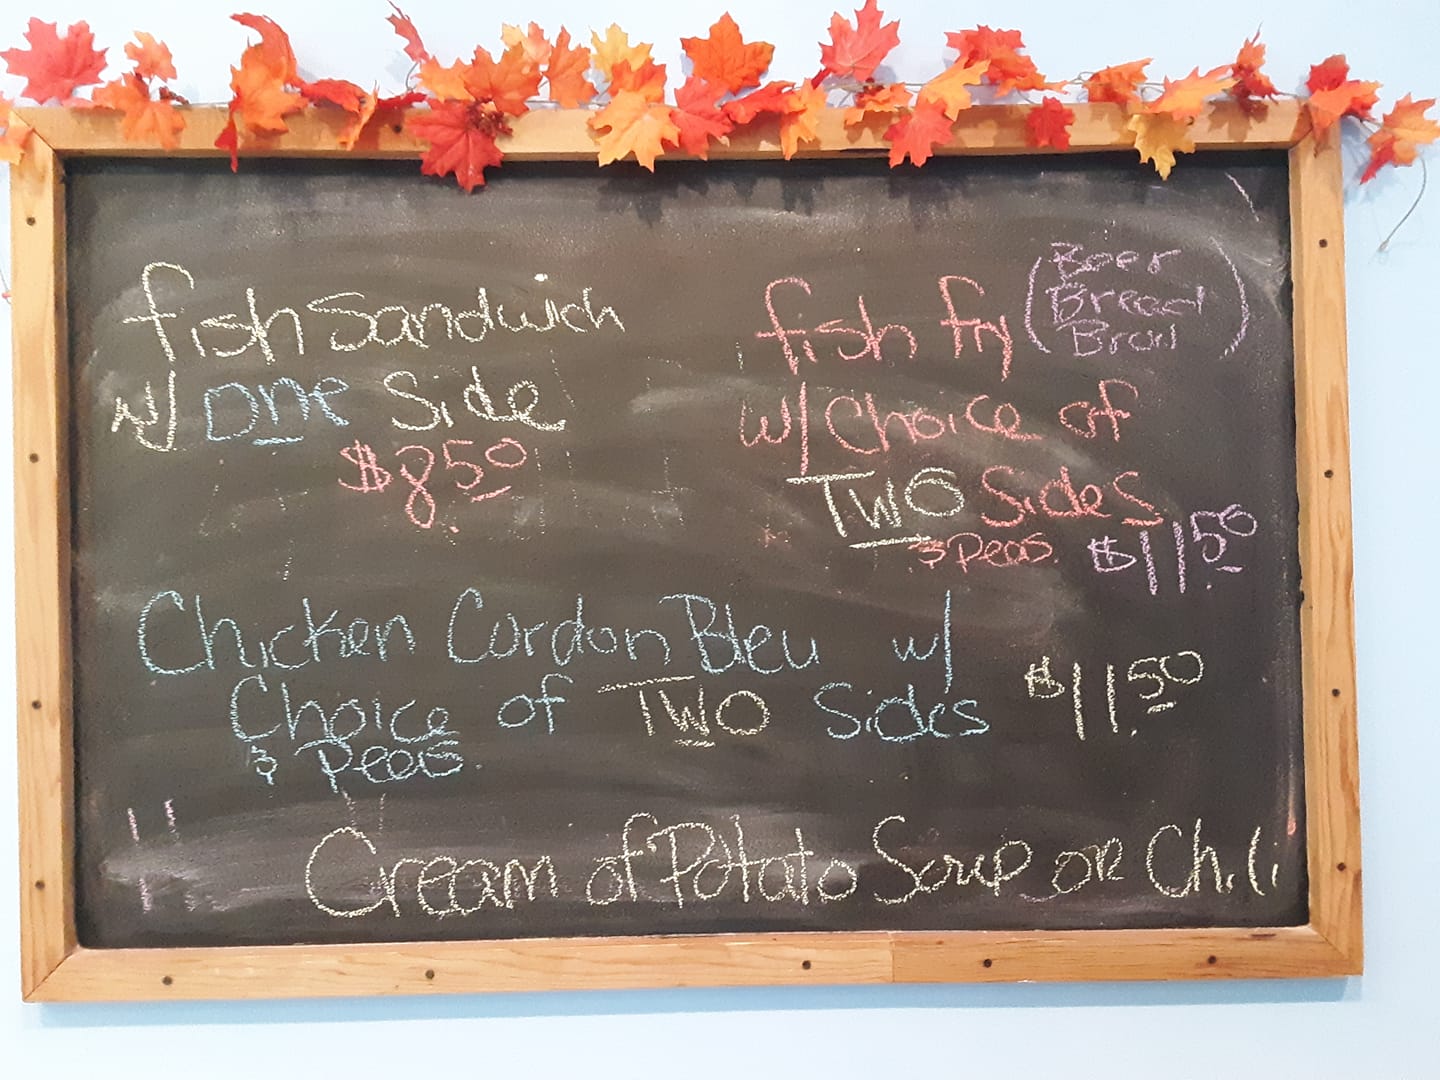 fish Sandwich
w/ One Side
$8.50
fish fry (Beer
Bread
Broil)
w/ Choice of
TWO Sides
& Peas. $11.50
Chicken Cordon Bleu w/
Choice of TWO Sides $11.50
& Peas.
Cream of Potato Soup or Chili